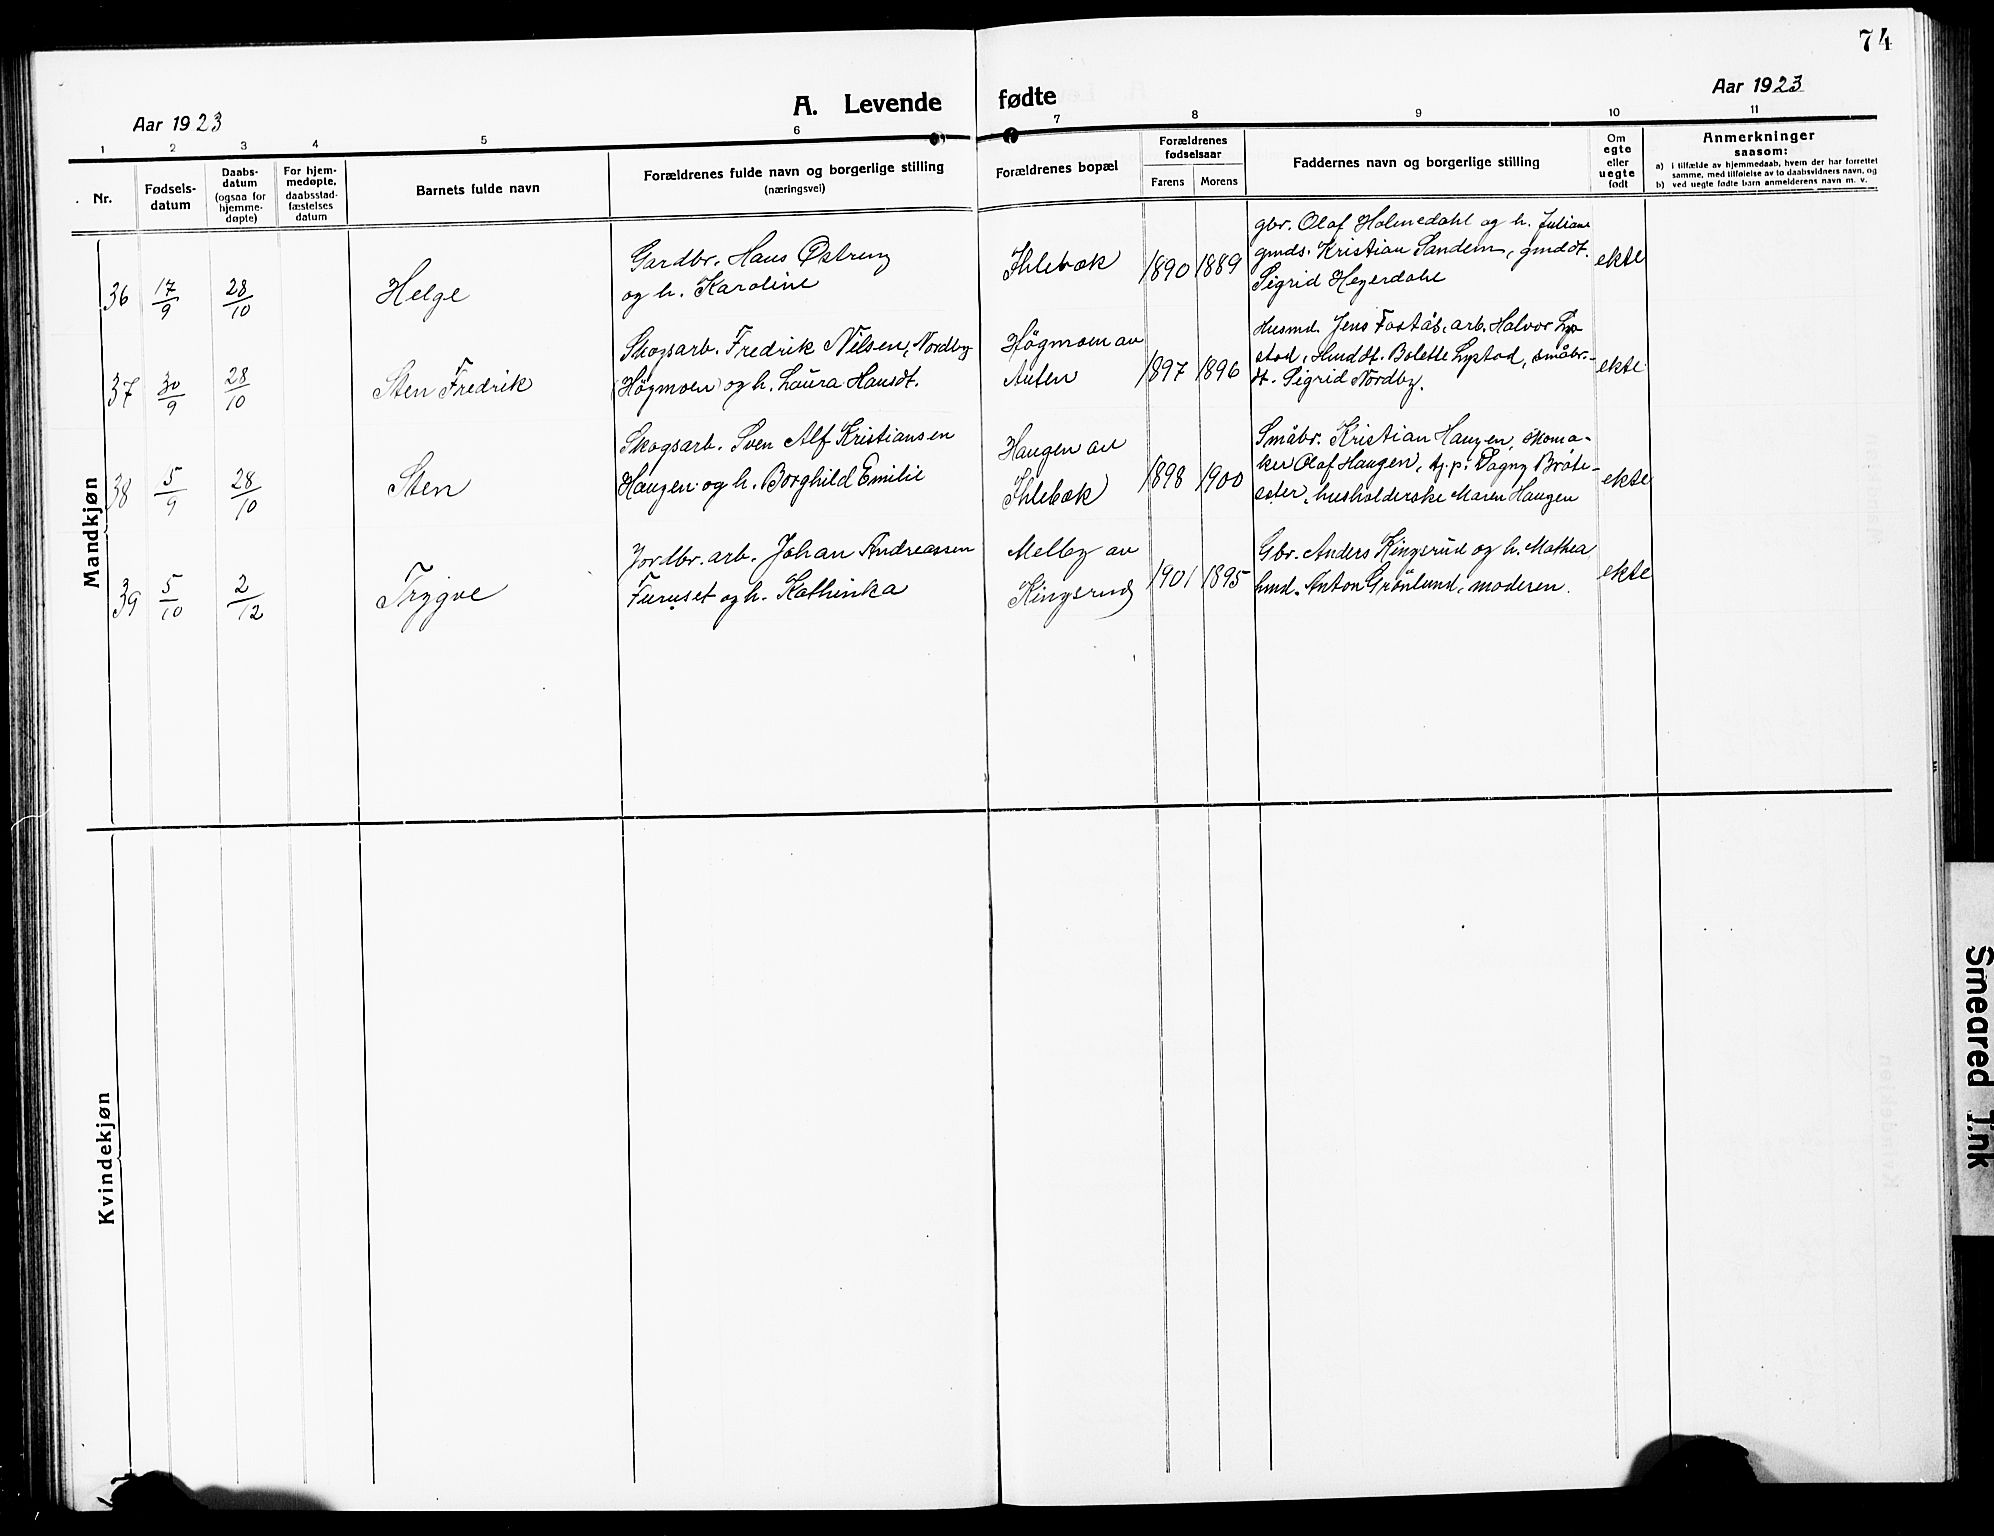 74
A. Levende fødte
Aar 1923
Aar 1923
1 2 3 4 5 6 7 8 9 10 11
Nr.
Fødsels-
datum
Daabs-
datum
(ogsaa for
hjemme-
døpte)
For hjem-
medøpte,
daabsstad-
fæstelses
datum
Barnets fulde navn
Forældrenes fulde navn og borgerlige stilling
(næringsvei)
Forældrenes bopæl
Forældrenes
fødselsaar
Farens Morens
Faddernes navn og borgerlige stilling
Om
egte
eller
uegte
født
Anmerkninger
saasom:
a) i tilfælde av hjemmedaab, hvem der har forrettet
samme, med tilføielse av to daabsvidners navn, og
b) ved uegte fødte barn anmelderens navn m. v.
Mandkjøn
36 17/9 28/10 Helge
Gardbr. Hans Østreng
og h. Karoline
Ihlebæk
1890 1889
gbr. Olaf Holmedahl og h. Juliane
gmds. Kristian Sandem, gmddt.
Sigrid Heyerdahl
ekte
37 30/9 28/10 Sten Fredrik
Skogsarb. Fredrik Nilsen, Nordby
(Högmoen) og h. Laura Hansdt.
Högmoen av
Auten
1897 1896
Husmd. Jens Fostås, arb. Halvor Lys-
stad, Hmddt. Bolette Lystad, småbr.-
dt. Sigrid Nordby.
ekte
38 5/9 28/10 Sten
Skogsarb. Sven Alf Kristiansen
Haugen og h. Borghild Emilie
Haugen av
Ihlebæk
1898 1900
Småbr. Kristian Haugen, skoma-
ker Olaf Haugen, tj.p. Dagny Bråte-
seter, husholderske Maren Haugen
ekte
39 5/10 2/12 Trygve
Jordbr. arb. Johan Andreassen
Furuset og h. Kathinka
Melby av
Kingsrud
1901 1895
Gbr. Anders Kingsrud og h. Mathea
hmd. Anton Grönlund, moderen.
ekte
Kvindekjøn
Smeared Ink